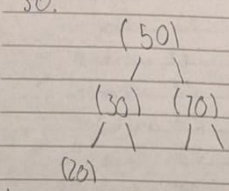 50.
(50)
(30) (70)
(20)